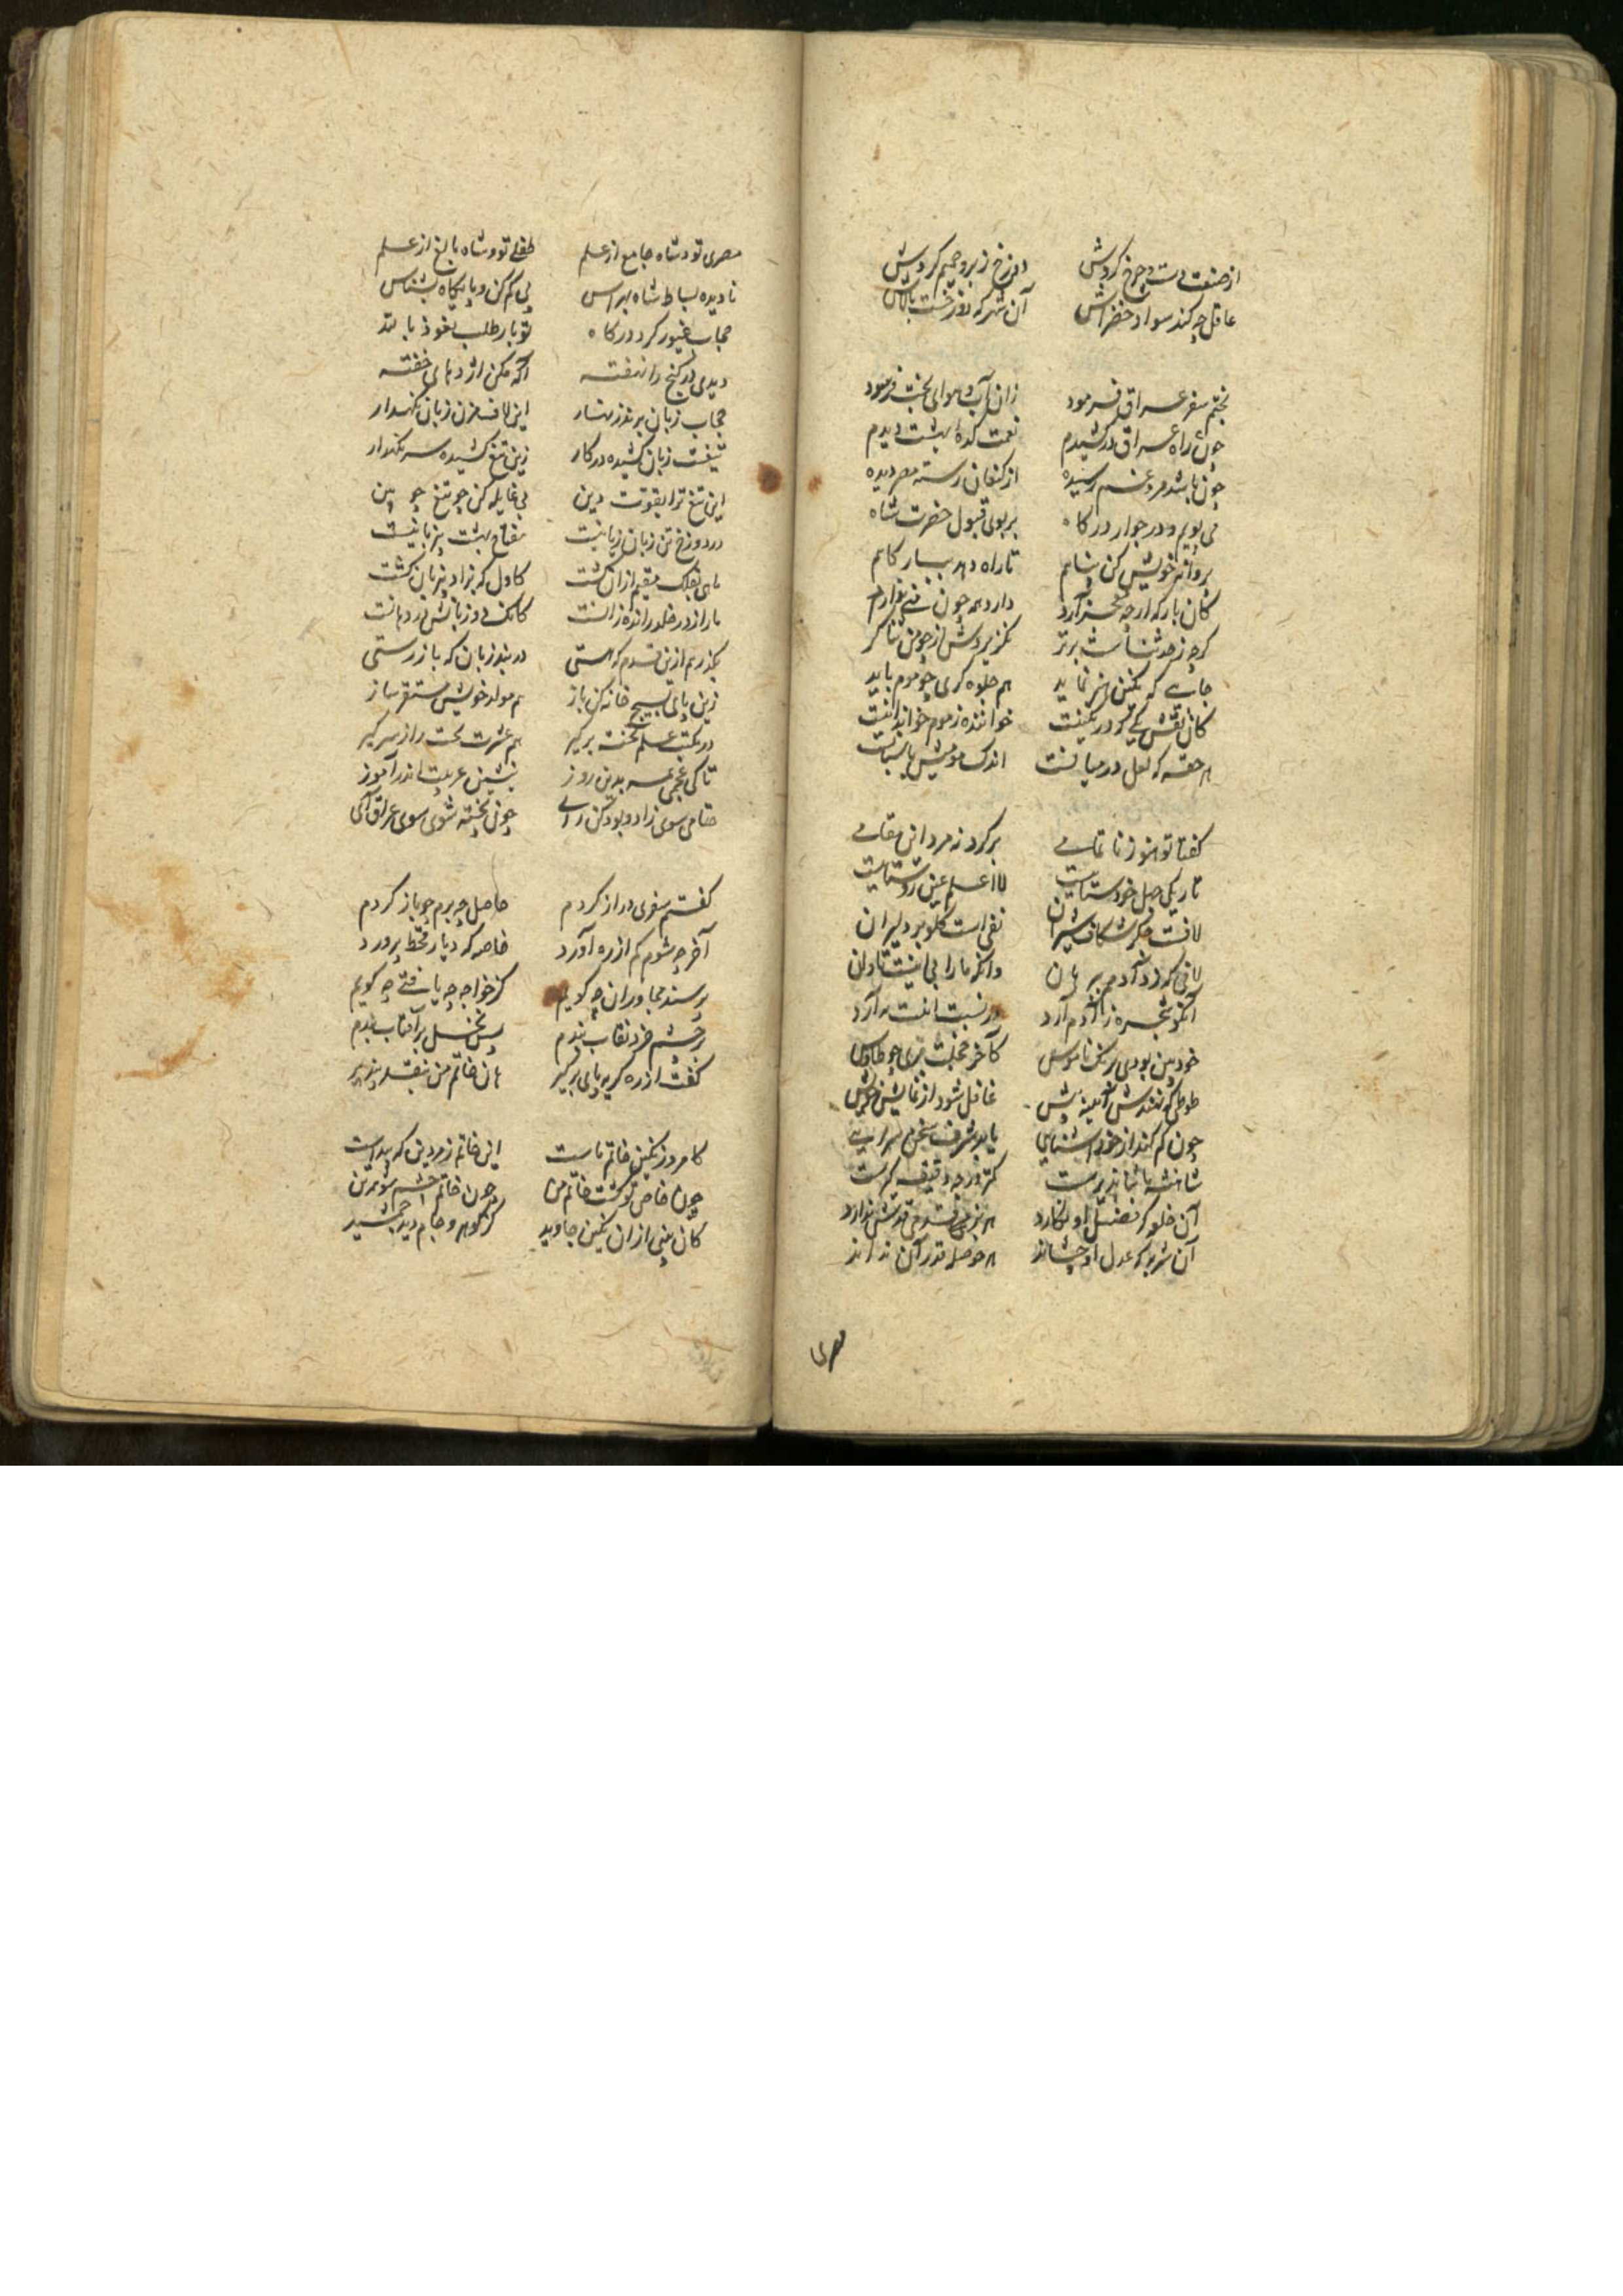 از صنعت دست چرخ گردش دوزخ ز بر و جحیم گردش
عاقل چه کند سواد خضراش آن شهر که دوزخست بالاش
بختم سفر عراق فرمود زان آب و هوای بخت فرسود
چون راه عراق در کشیدم نعمت کده بهشت دیدم
چون باشد مرد غم رسیده از کنعان رسته مصر دیده
می پویم و در جوار درگاه بر بوی قبول حضرت شاه
پروانه خویش کن پناهم تا راه دهد ببارگاهم
کان بارکه ارچه دارد همه چون
گرچه ز حد ثناست برتر نگزیردش از چو من ثناگر
جایی که نگین هنر نماید هم جلوه گری چو موم باید
کان نقش که در نگینست خواننده ز موم خواند
هر حقه که لعل در میانست اندک مومیش پاسبانست
گفتا تو هنوز ناتمامی برگرد نه مرد این مقامی
تاریکی جهل خودستاییست لا اعلم عین روشناییست
لافت جگر شکاف شیران نفی است گلوبر دلیران
لافی که زد آدم
آنکو شجره ز آدم آرد در نسبت
خودبین بودی برنگ ناموس کآخر خجلت بری چو طاوس
طوطی که نهندش آینه پیش غافل شود از نمایش خویش
چون گم کند از خود آشنایی یابد شرف سخن سرایی
شاهنشه
آن خلد که فضل او نگارد هر بزمی قدرش ندارد
آن شربه که عدل او چشاند هر حوصله قدر آن نداند
مصری
مصری تو و شاه جامع از علم طفلی تو و شاه بالغ از علم
نادیده بساط شاه مهراس پی گم کن و پایگاه بشناس
حجاب غیور گرد درگاه تو بار طلب نعوذ بالله
دیدی در گنج را نهفته آگه مکن اژدهای خفته
حجاب زبان برند زنهار این لاف مزن زبان نگهدار
تیغت زبان کشیده در کار زین تیغ کشیده سر نگهدار
این تیغ ترا بقوت دین بی غایله کن چو تیغ چوبین
در دوزخ تن زبان زبانیست مفتاح بهشت بی زبانیست
ماهی بفلک مقیم از آن گشت کاول که بزاد بی زبان گشت
مار از در خلد رانده زانست کانک دو زبانش در دهانست
بگذر هم ازین قدم که هستی در بند زبان که باز رستی
زین پای بسیج خانه کن باز هم مولد خویش مستقر ساز
در مکتب علم تخته برگیر هم عشرت تحت را ز سر گیر
تا کی عجمی سر بدین روز بنشین عربیت اندر آموز
خامی سوی زاد و بود کن رای چون پخته شوی سوی عراق آی
گفتم سفری دراز کردم حاصل چه برم چو باز گردم
آخر چه شوم کم از ره آورد خاصه که دیار قحط پرورد
پرسند مجاوران چه گویم کز خواجه چه یافتی چه گویم
بر چشم خرد نقاب بندم پس نخل بر آفتاب بندم
گفت از ره گریه پای برگیر هان خاتم من بنقد بپذیر
کامروز نگین خاتم ماست این خاتم زمردین که پیداست
چون خاص تو گشت خاتم من چون خاتم چشم شو
کان بینی از آن نگین جاوید کز گوهر و جام دید جمشید